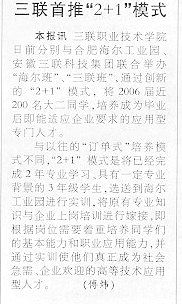 三联首推“2+1”模式
本报讯 三联职业技术学院
日前分别与合肥海尔工业园、
安徽三联科技集团联合举办
“海尔班”、“三联班”,通过创新
的“2+1”模式,将2006届近
200名大二同学,培养成为毕业
后即能适应企业要求的应用型
专门人才。
与以往的“订单式”培养模
式不同,“2+1”模式是将已经完
成2年专业学习、具有一定专业
背景的3年级学生,选送到海尔
工业园进行实训,将原有专业知
识与企业上岗培训进行嫁接,即
根据岗位需要着重培养同学们
的基本能力和职业应用能力,并
通过实训使他们真正成为社会
急需、企业欢迎的高等技术应用
型人才。 (傅炜)